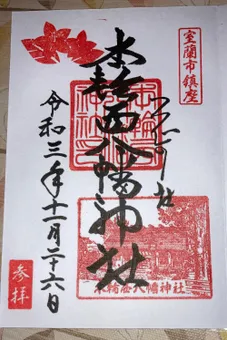 室蘭市鎮座
本輪西八幡神社
令和三年十一月二十六日
参拝
本輪西八幡神社